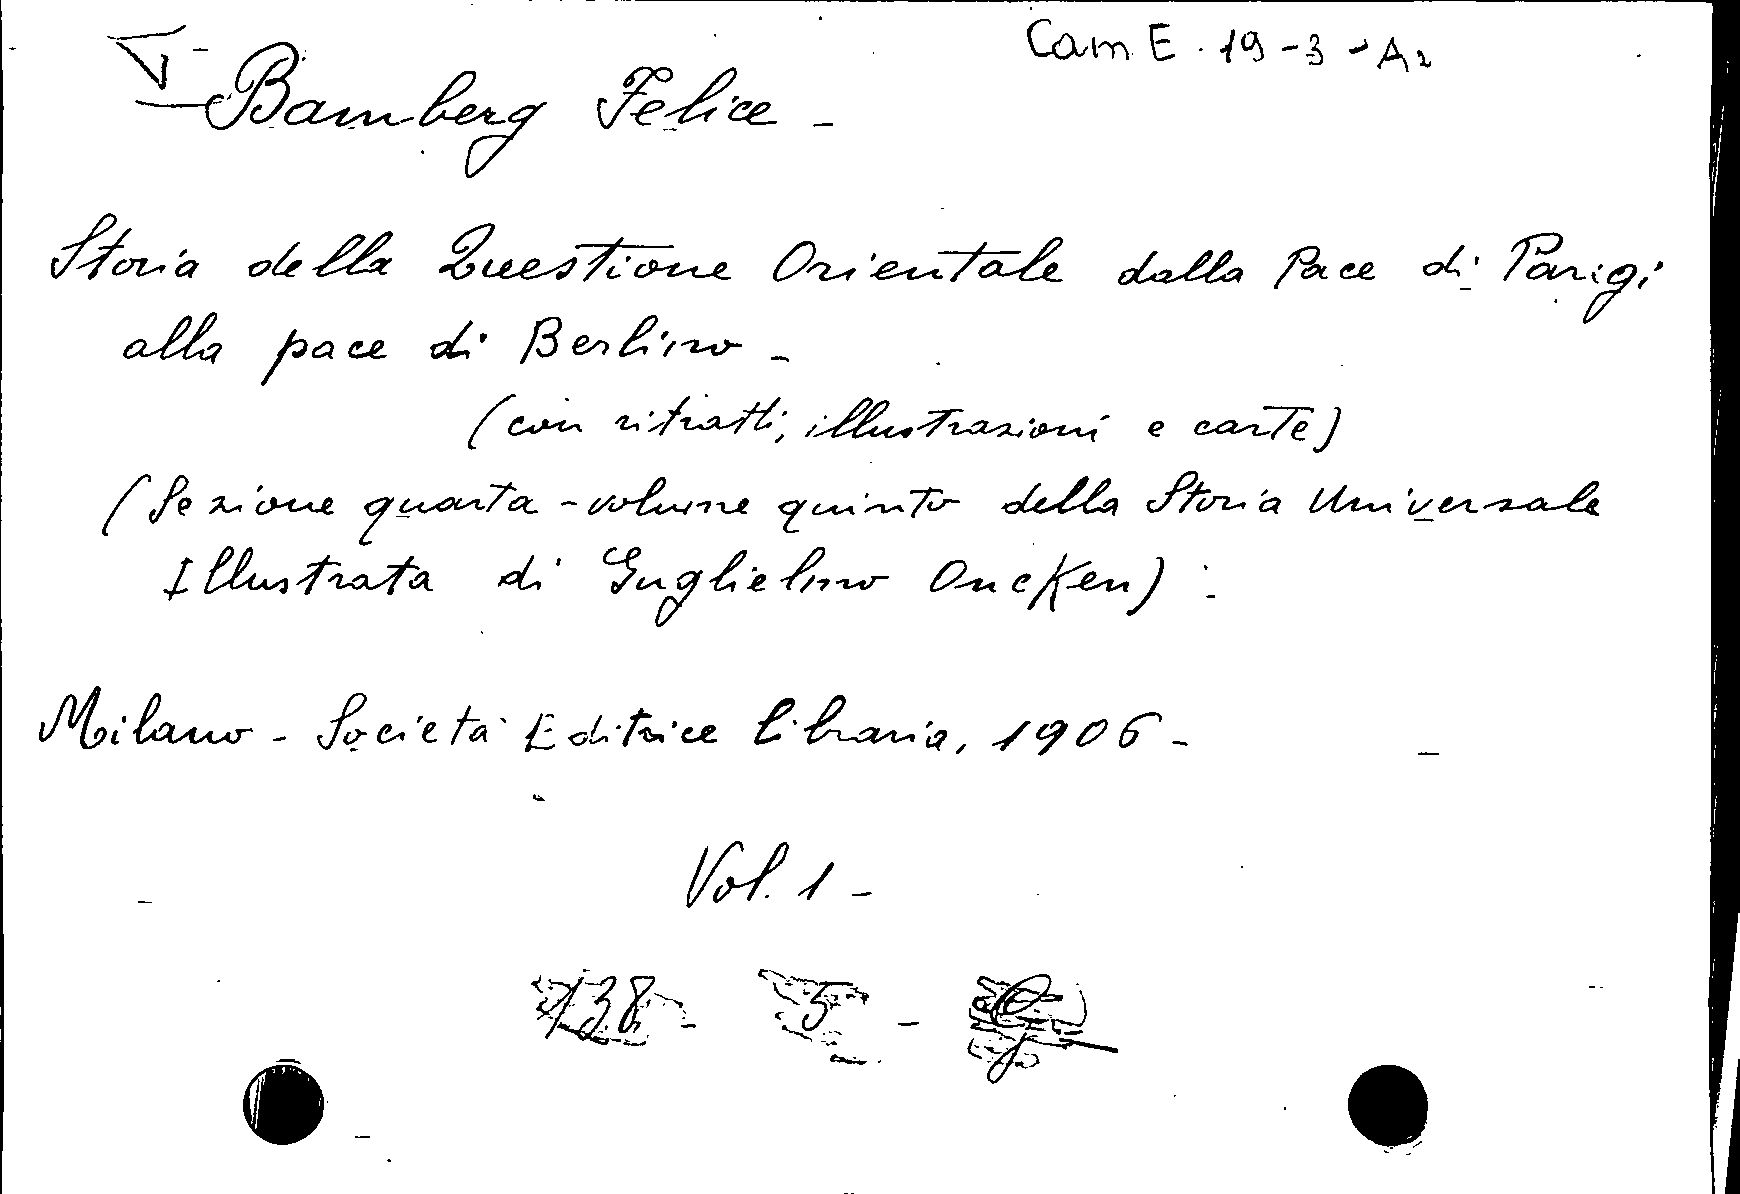 Cam E. 19-3-A2
Bamberg Felice -
Storia della Questione Orientale dalla Pace di Parigi
alla pace di Berlino -
(con ritratti, illustrazioni e carte)
(Sezione quarta - volume quinto della Storia Universale
Illustrata di Guglielmo Oncken) :
Milano - Società Editrice Libraria, 1906 -
Vol. 1 -
138 - 5 -